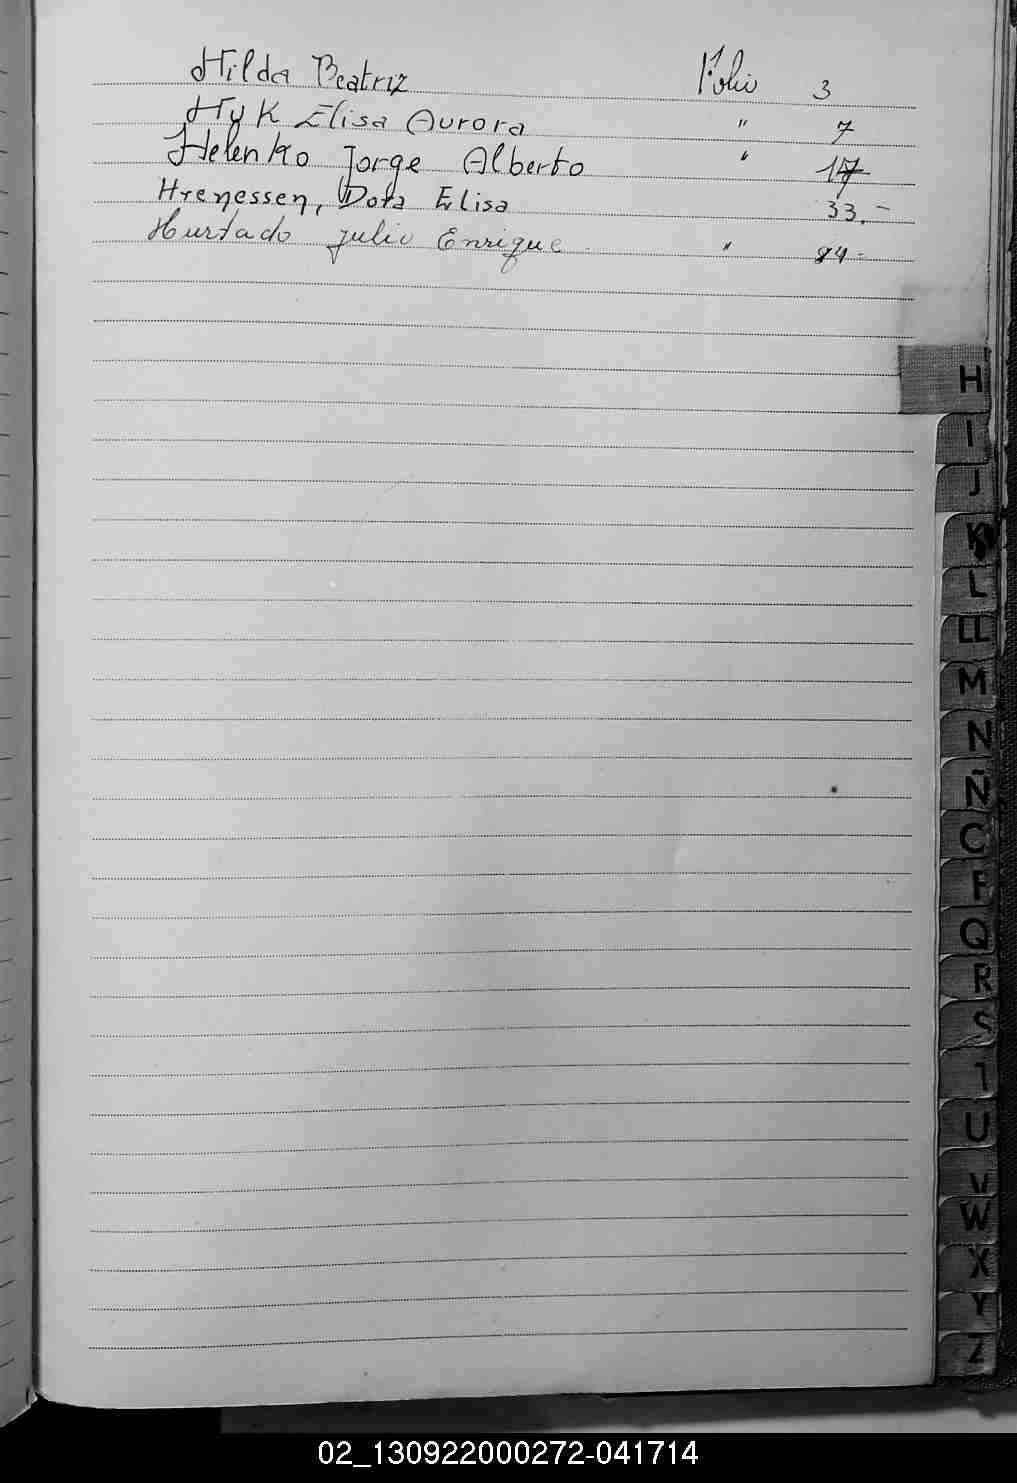 Hilda Beatriz Folio 3
Hyk Elisa Aurora " 7
Helenko Jorge Alberto " 17
Hrenessen, Dora Elisa 33.-
Hurtado Julio Enrique. " 84-
H
I
J
K
L
LL
M
N
Ñ
O
P
Q
R
S
T
U
V
W
X
Y
Z
02_130922000272-041714